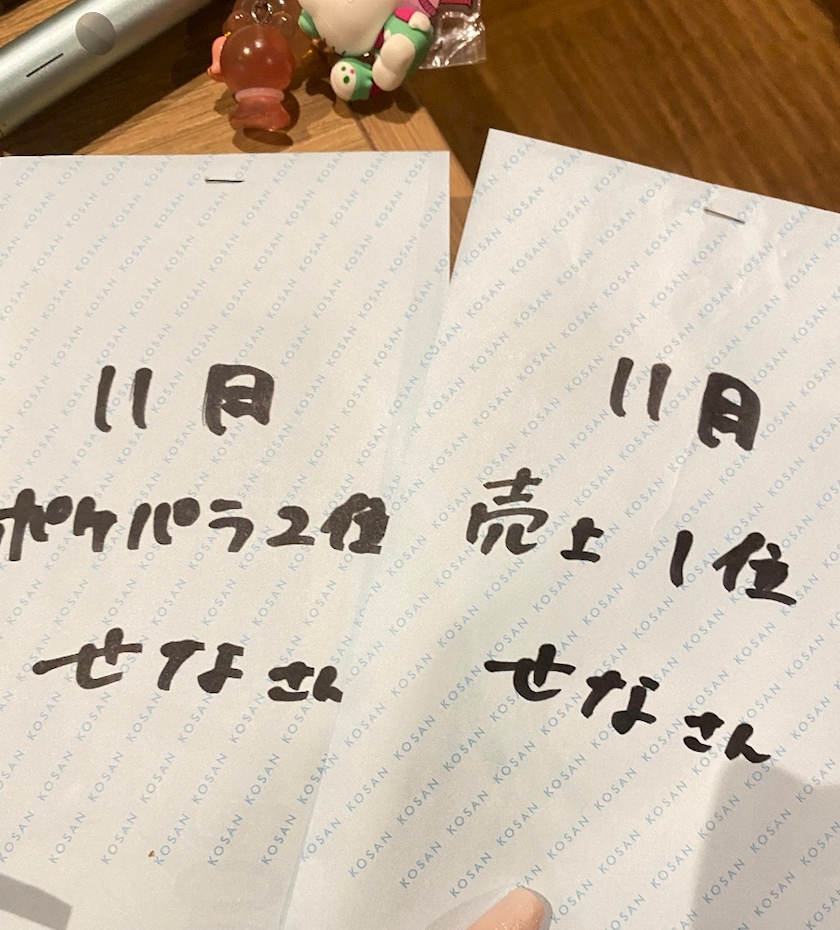 11月
ポケパラ2位
せなさん
11月
売上 1位
せなさん
KOSAN